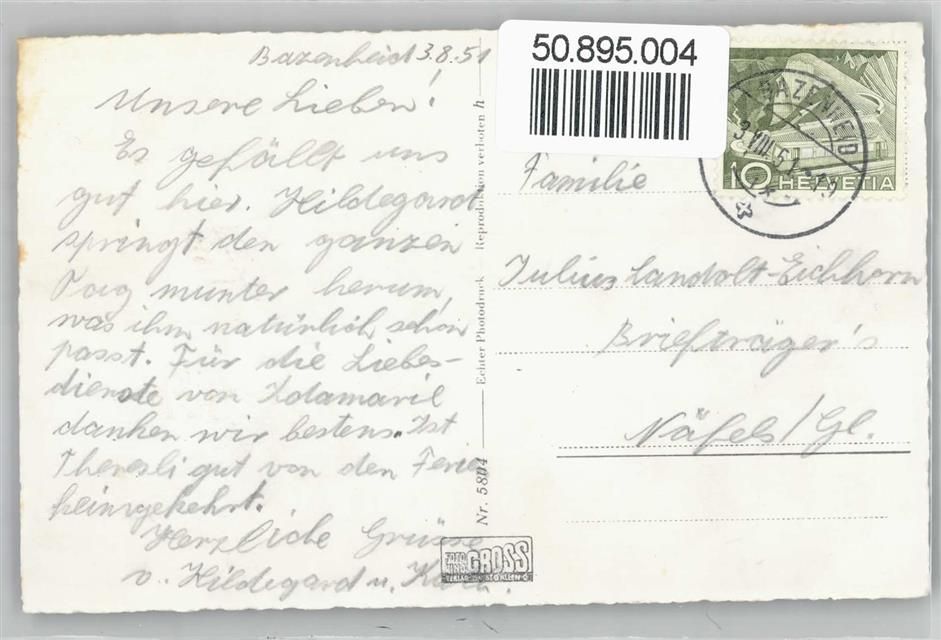 Bazenheid 3.8.51
Unsere Lieben!
Es gefällt uns
gut hier. Hildegard
springt den ganzen
Tag munter herum,
was ihm natürlich schon
passt. Für die Liebes-
dienste von
danken wir bestens. Ist
Theresli gut von den
heimgekehrt.
Herzliche Grüsse
v. Hildegard u.
Nr. 5804 Echter Photodruck Reproduktion verboten h
FOTO GROSS
50.895.004
BAZENHEID
3.VIII.51
10 HELVETIA
Familie
Julius Landolt-Eichhorn
Briefträger's
Näfels/Gl.